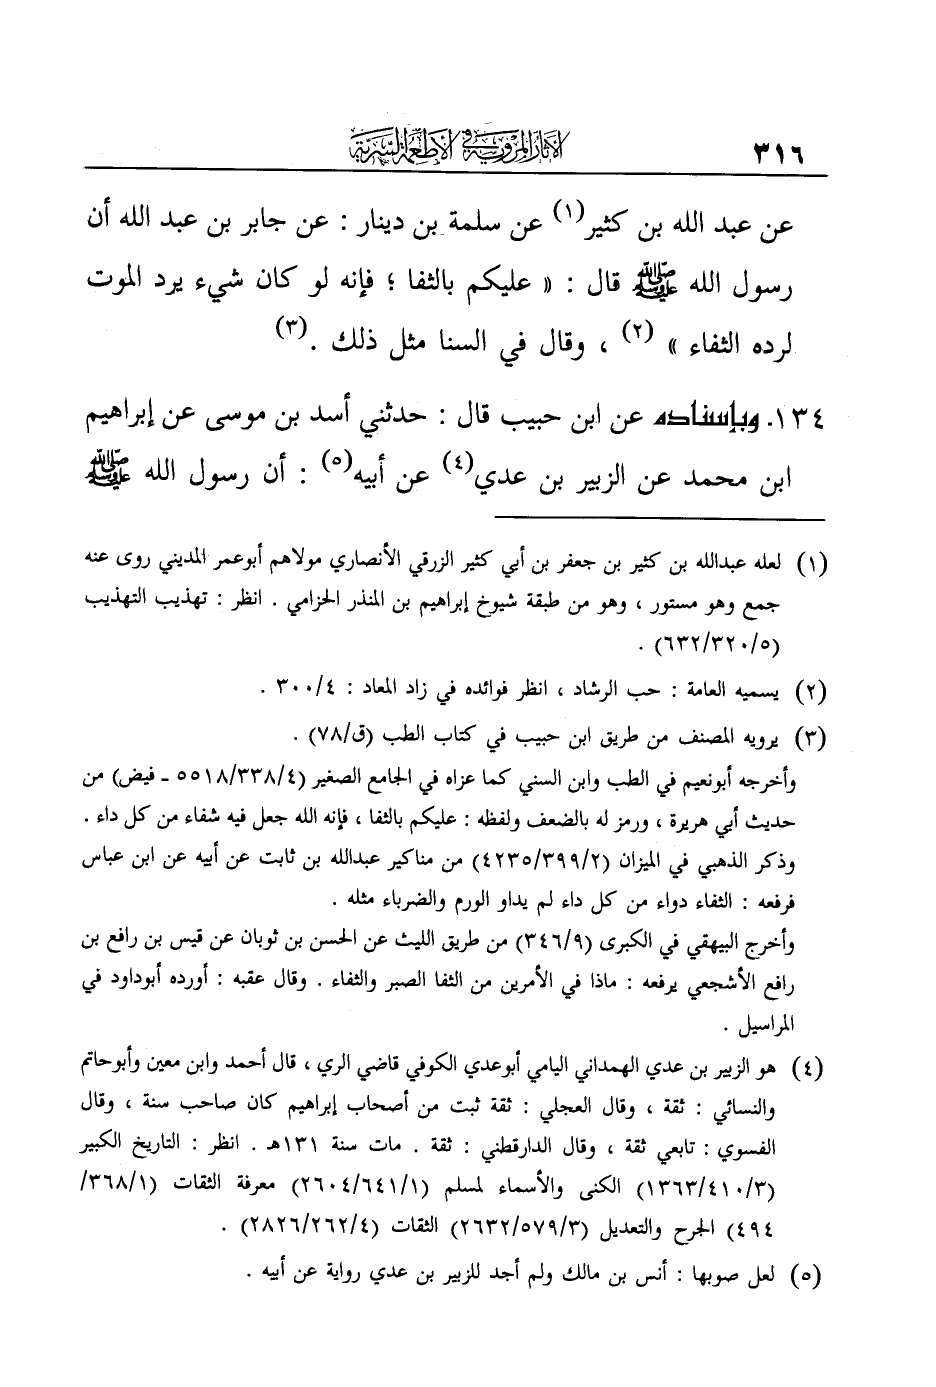 ٣١٦
الآثار المروية في الأطعمة السرية
عن عبد الله بن كثير(١) عن سلمة بن دينار : عن جابر بن عبد الله أن
رسول الله ﷺ قال : « عليكم بالثفا ؛ فإنه لو كان شيء يرد الموت
لرده الثفاء » (٢) ، وقال في السنا مثل ذلك .(٣)
١٣٤. وبإسناده عن ابن حبيب قال : حدثني أسد بن موسى عن إبراهيم
ابن محمد عن الزبير بن عدي(٤) عن أبيه(٥) : أن رسول الله ﷺ
(١) لعله عبدالله بن كثير بن جعفر بن أبي كثير الزرقي الأنصاري مولاهم أبوعمر المديني روى عنه
جمع وهو مستور ، وهو من طبقة شيوخ إبراهيم بن المنذر الحزامي . انظر : تهذيب التهذيب
(٥/٣٢٠/٦٣٢) .
(٢) يسميه العامة : حب الرشاد ، انظر فوائده في زاد المعاد : ٤/٣٠٠ .
(٣) يرويه المصنف من طريق ابن حبيب في كتاب الطب (ق/٧٨) .
وأخرجه أبونعيم في الطب وابن السني كما عزاه في الجامع الصغير (٤/٣٣٨/٥٥١٨ ـ فيض) من
حديث أبي هريرة ، ورمز له بالضعف ولفظه : عليكم بالثفا ، فإنه الله جعل فيه شفاء من كل داء .
وذكر الذهبي في الميزان (٢/٣٩٩/٤٢٣٥) من مناكير عبدالله بن ثابت عن أبيه عن ابن عباس
فرفعه : الثفاء دواء من كل داء لم يداو الورم والضرباء مثله .
وأخرج البيهقي في الكبرى (٩/٣٤٦) من طريق الليث عن الحسن بن ثوبان عن قيس بن رافع بن
رافع الأشجعي يرفعه : ماذا في الأمرين من الثفا الصبر والثفاء . وقال عقبه : أورده أبوداود في
المراسيل .
(٤) هو الزبير بن عدي الهمداني اليامي أبوعدي الكوفي قاضي الري ، قال أحمد وابن معين وأبوحاتم
والنسائي : ثقة ، وقال العجلي : ثقة ثبت من أصحاب إبراهيم كان صاحب سنة ، وقال
الفسوي : تابعي ثقة ، وقال الدارقطني : ثقة . مات سنة ١٣١هـ . انظر : التاريخ الكبير
(٣/٤١٠/١٣٦٣) الكنى والأسماء لمسلم (١/٦٤١/٢٦٠٤) معرفة الثقات (١/٣٦٨/
٤٩٤) الجرح والتعديل (٣/٥٧٩/٢٦٣٢) الثقات (٤/٢٦٢/٢٨٢٦) .
(٥) لعل صوبها : أنس بن مالك ولم أجد للزبير بن عدي رواية عن أبيه .